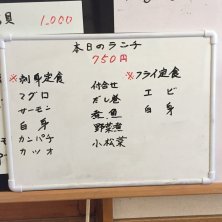 具 1,000
本日のランチ
750円
※刺身定食
マグロ
サーモン
白身
カンパチ
カツオ
付合せ
だし巻
煮魚
野菜煮
小松菜
※フライ定食
エビ
白身